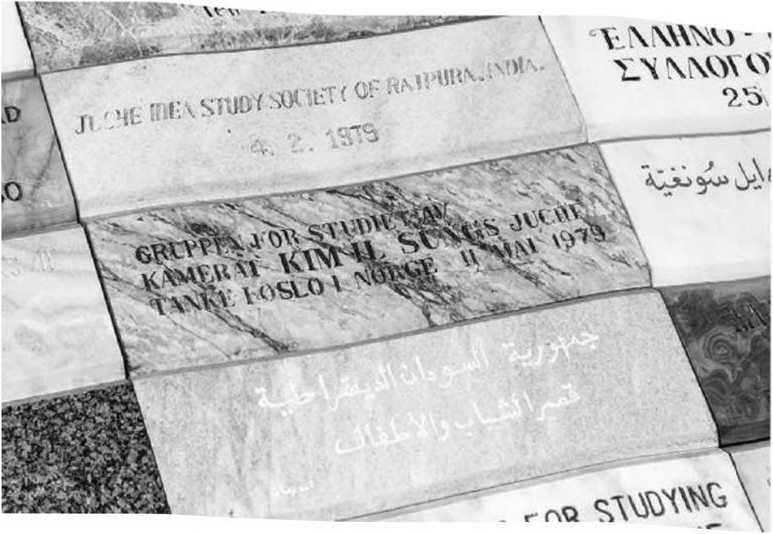 JUCHE IDEA STUDY SOCIETY OF RAJPURA. INDIA.
4. 2. 1979
ΕΛΛΗΝΟ -
ΣΥΛΛΟΓΟ
25
GRUPPEN FOR STUDIET AV
KAMERAT KIM IL SUNGS JUCHE
TANKE I OSLO I NORGE 11 MAI 1979
سونغيّة
جمهورية السودان الديمقراطية
قصر الشباب والأطفال
FOR STUDYING